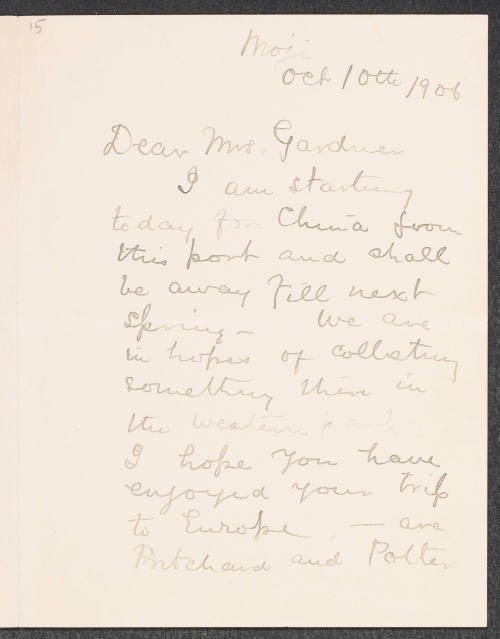 15
Moji
Oct 10th 1906
Dear Mrs. Gardner
I am starting
today for China from
this port and shall
be away till next
Spring — We are
in hopes of collecting
something there in
the western
I hope you have
enjoyed your trip
to Europe, — are
Pritchard and Potter